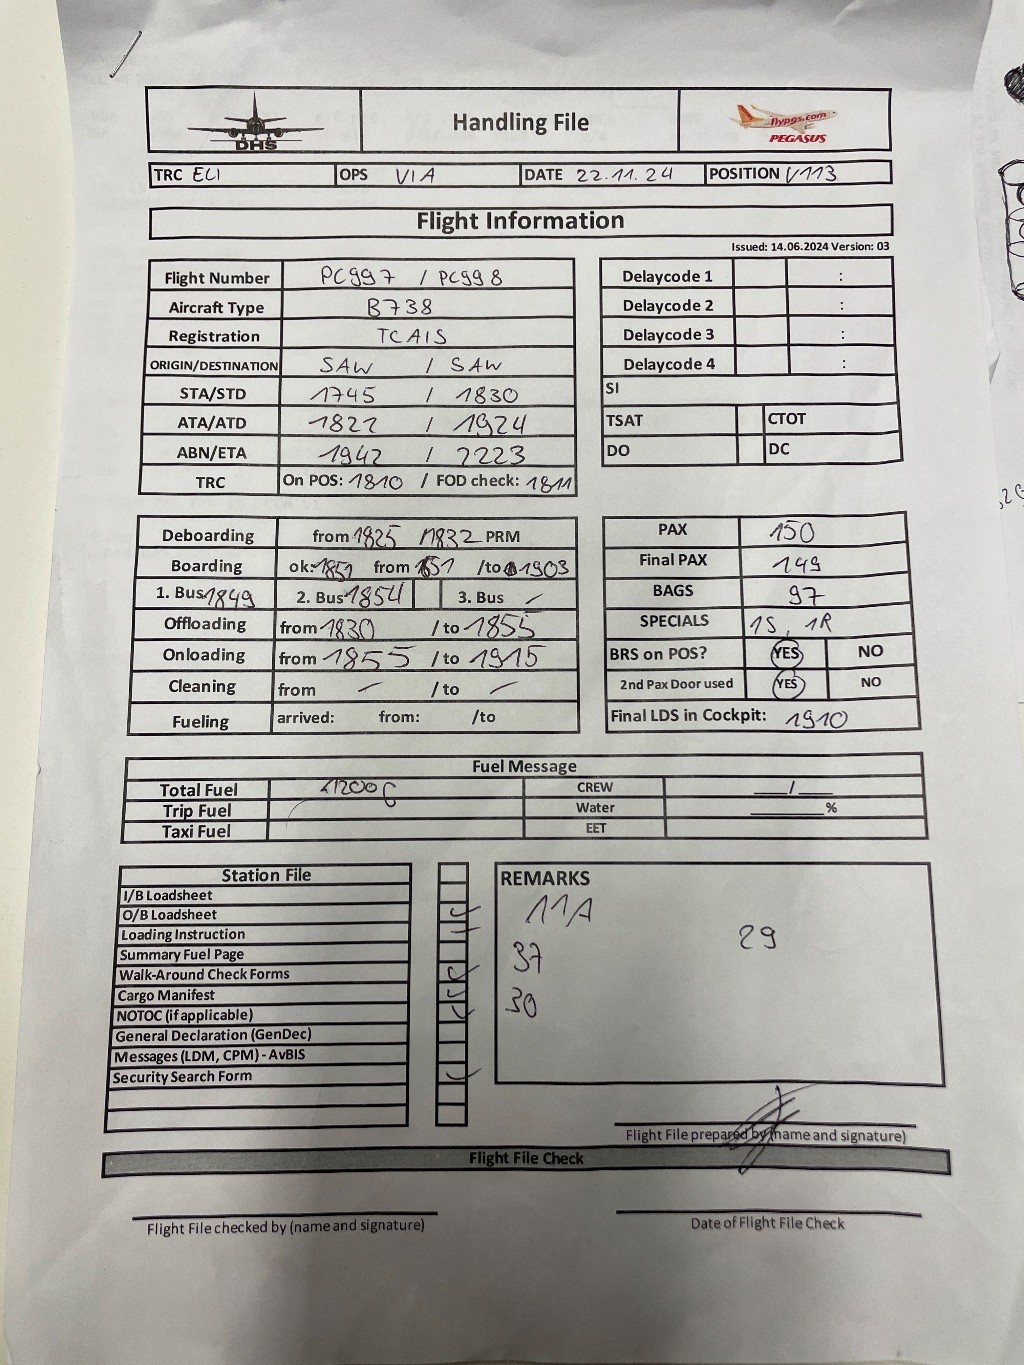 DHS
Handling File
flypgs.com
PEGASUS
TRC ECI OPS VIA DATE 22.11.24 POSITION V113
Flight Information
Issued: 14.06.2024 Version: 03
Flight Number PC997 / PC998
Aircraft Type B738
Registration TCAIS
ORIGIN/DESTINATION SAW / SAW
STA/STD 1745 / 1830
ATA/ATD 1822 / 1924
ABN/ETA 1942 / 2223
TRC On POS: 1810 / FOD check: 1811
Delaycode 1 :
Delaycode 2 :
Delaycode 3 :
Delaycode 4 :
SI
TSAT CTOT
DO DC
Deboarding from 1825 / 1832 PRM
Boarding ok: 1851 from 1851 /to 1903
1. Bus 1849 2. Bus 1854 3. Bus –
Offloading from 1830 / to 1855
Onloading from 1855 / to 1915
Cleaning from – / to –
Fueling arrived: from: /to
PAX 150
Final PAX 149
BAGS 97
SPECIALS 1S, 1R
BRS on POS? YES NO
2nd Pax Door used YES NO
Final LDS in Cockpit: 1910
Fuel Message
Total Fuel CREW ___/___
Trip Fuel Water ______%
Taxi Fuel EET
Station File
I/B Loadsheet
O/B Loadsheet
Loading Instruction
Summary Fuel Page
Walk-Around Check Forms
Cargo Manifest
NOTOC (if applicable)
General Declaration (GenDec)
Messages (LDM, CPM) - AvBIS
Security Search Form
REMARKS
11A
29
37
30
Flight File prepared by (name and signature)
Flight File Check
Flight File checked by (name and signature)
Date of Flight File Check